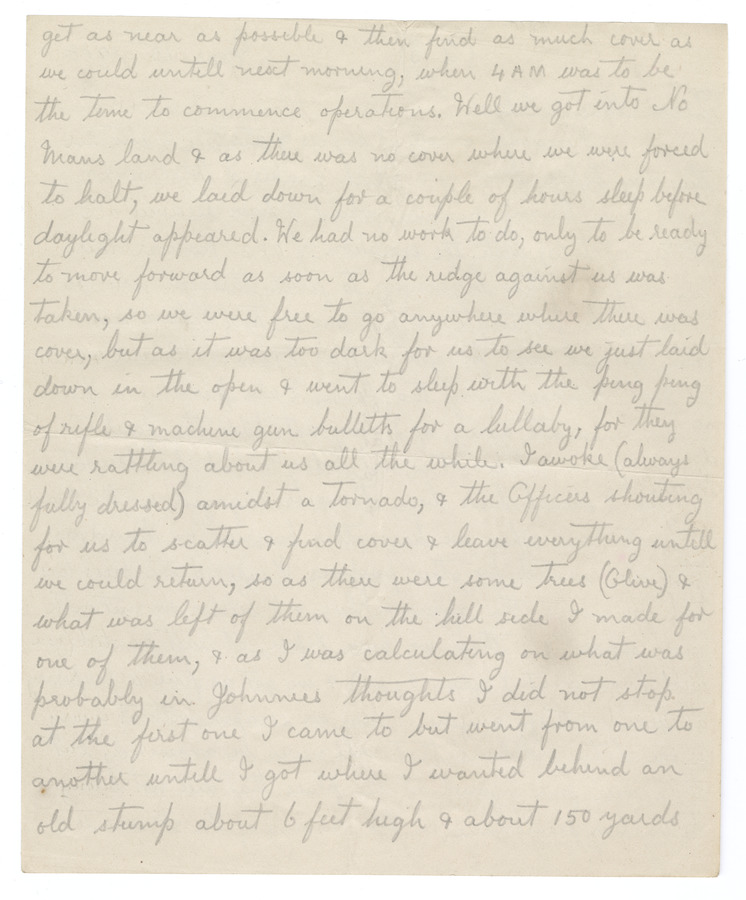 get as near as possible & then find as much cover as
we could untell next morning, when 4 AM was to be
the time to commence operations. Well we got into No
Mans land & as there was no cover where we were forced
to halt, we laid down for a couple of hours sleep before
daylight appeared. We had no work to do, only to be ready
to move forward as soon as the ridge against us was
taken, so we were free to go anywhere where there was
cover, but as it was too dark for us to see we just laid
down in the open & went to sleep with the ping ping
of rifle & machine gun bulletts for a lullaby, for they
were rattling about us all the while. I awoke (always
fully dressed) amidst a Tornado, & the Officers shouting
for us to scatter & find cover & leave everything untell
we could return, so as there were some trees (Olive) &
what was left of them on the hill side I made for
one of them, & as I was calculating on what was
probably in Johnnees thoughts I did not stop
at the first one I came to but went from one to
another untell I got where I wanted behind an
old stump about 6 feet high & about 150 yards